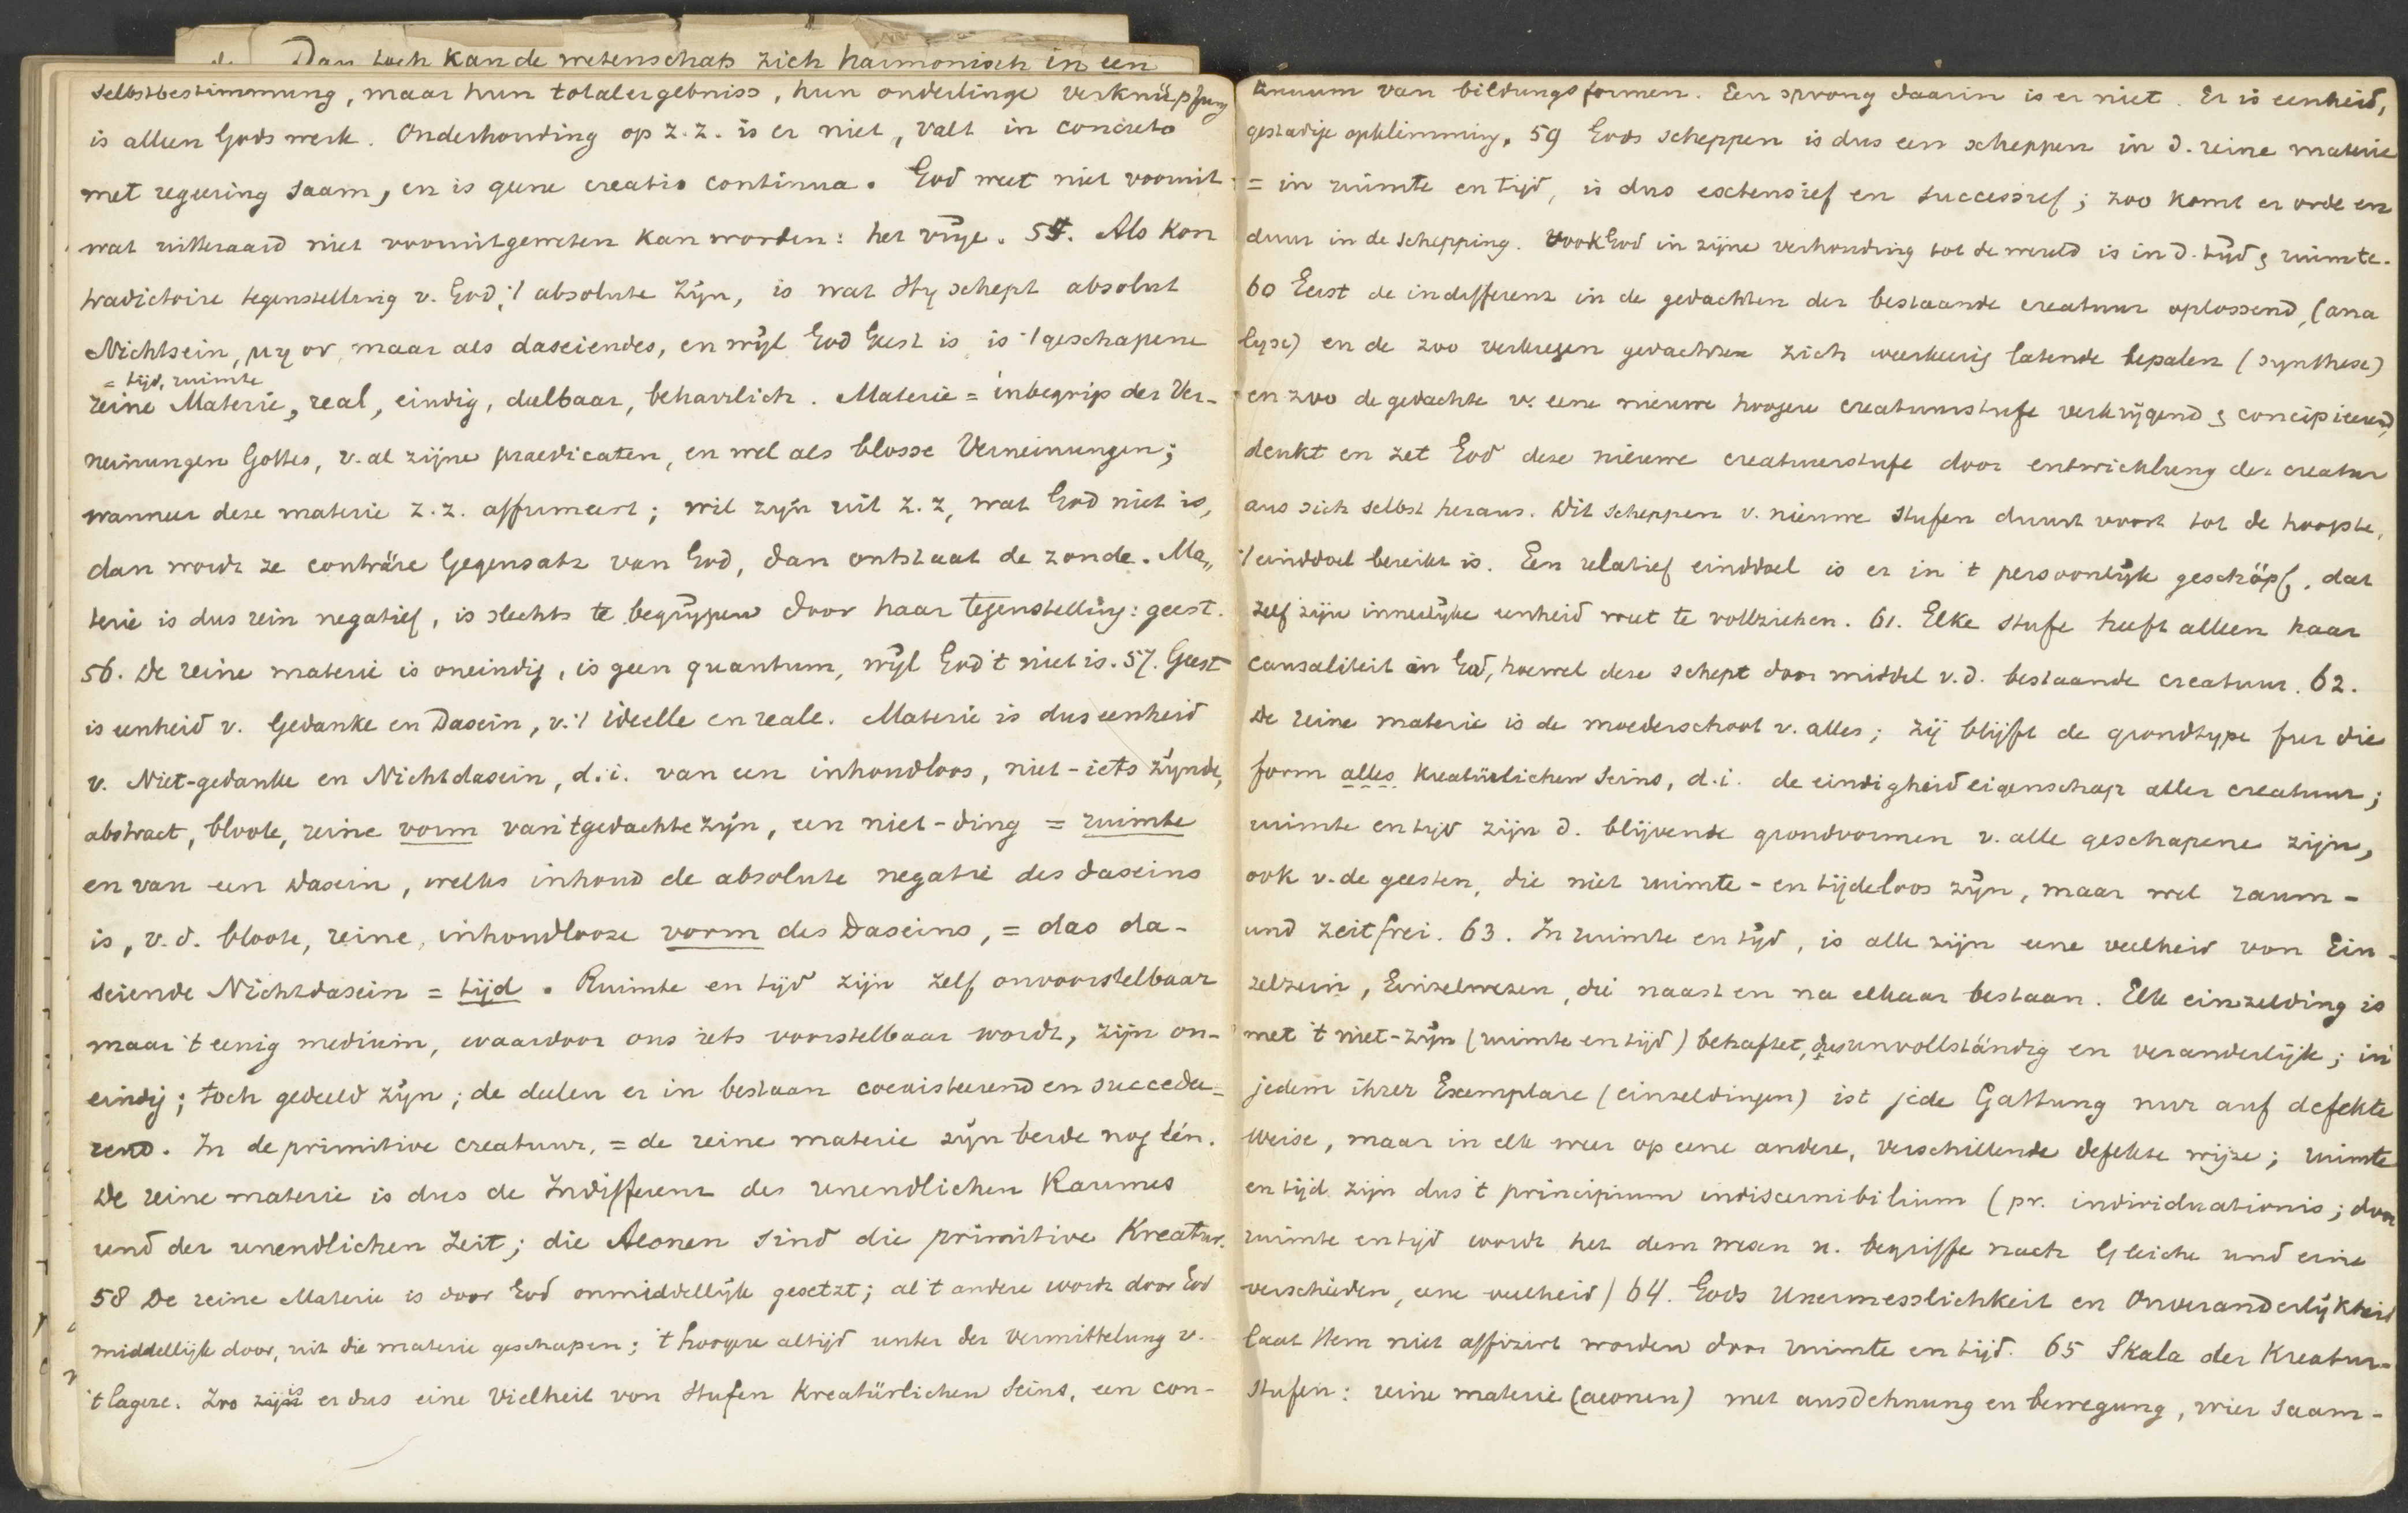 Dan toch kan de wetenschap zich harmonisch in een
selbstbestimmung, maar hun totalergebniss, hun onderlinge verknüpfung
is alleen Gods werk. Onderhouding op z.z. is er niet, valt in concreto
met regeering saam, en is geene creatio continua. God weet niet vooruit
wat uitteraard niet vooruitgeweten kan worden: het vrije. 55. Als kon
tradictoire tegenstelling v. God, 't absolute zijn, is wat Hij schept absolut
Nichtsein, μη ον, maar als daseiendes, en wijl God Geest is, is 't geschapene
= tijd, ruimte
reine Materie, real, eindig, deelbaar, beharrlich. Materie = inbegrip der Ver-
neinungen Gottes, v. al zijne praedicaten, en wel als blosse Verneinungen;
wanneer deze materie z.z. affirmeert; wil zijn uit z.z, wat God niet is,
dan wordt ze conträre Gegensatz van God, dan ontstaat de zonde. Ma„
terie is dus rein negatief, is slechts te begrijpen door haar tegenstelling: geest.
56. De reine materie is oneindig, is geen quantum, wijl God 't niet is. 57. Geest
is eenheid v. Gedanke en Dasein, v. 't ideelle en reale. Materie is dus eenheid
v. Niet-gedanke en Nichtdasein, d.i. van een inhoudloos, niet-iets zijnde,
abstract, bloote, reine vorm van 't gedachte zijn, een niet-ding = ruimte
en van een Dasein, welks inhoud de absolute negatie des daseins
is, v.d. bloote, reine, inhoudlooze vorm des Daseins, = das da-
seiende Nichtdasein = tijd. Ruimte en tijd zijn zelf onvoorstelbaar
maar 't eenig medium, waardoor ons iets voorstelbaar wordt, zijn on-
eindig; toch gedeeld zijn; de deelen er in bestaan coexisteerend en succedee-
rend. In de primitive creatuur, = de reine materie zijn beide nog één.
De reine materie is dus de Indifferenz des unendlichen Raumes
und der unendlichen Zeit; die Aeonen sind die primitive Kreatur.
58 De reine Materie is door God onmiddellijk gesetzt; al 't andere wordt door God
middellijk door, uit die materie geschapen; 't hoogere altijd unter der Vermittelung v.
't lagere. Zoo is er dus eine Vielheit von Stufen kreatürlichen Seins, een con-
tinuum van bildungsformen. Een sprong daarin is er niet. Er is eenheid,
gestadige opklimming. 59 Gods scheppen is dus een scheppen in d. reine materie
= in ruimte en tijd, is dus extensief en successief; zoo komt er orde en
duur in de schepping. Ook God in zijne verhouding tot de wereld is in d. tijd & ruimte.
60 Eerst de indifferenz in de gedachten der bestaande creatuur oplossend, (ana
lyse) en de zoo verkregen gedachten zich weerkeerig latende bepalen (synthese)
en zoo de gedachte v. eene nieuwe hoogere creatuurstufe verkrijgend & concipieerend,
denkt en zet God deze nieuwe creatuurstufe door entwicklung der creatur
aus sich selbst heraus. Dit scheppen v. nieuwe stufen duurt voort tot de hoogste,
't einddoel bereikt is. Een relatief einddoel is er in 't persoonlijk geschöpf, dat
zelf zijn innerlijke eenheid weet te vollziehen. 61. Elke stufe heeft alleen haar
causaliteit in God, hoewel deze schept door middel v.d. bestaande creatuur. 62.
De reine materie is de moederschoot v. alles; zij blijft de grondtype fur die
form alles kreatürlichen Seins, d.i. de eindigheid eigenschap aller creatuur;
ruimte en tijd zijn d. blijvende grondvormen v. alle geschapene zijn,
ook v. de geesten, die niet ruimte- en tijdeloos zijn, maar wel raum-
und zeitfrei. 63. In ruimte en tijd, is alle zijn eene veelheid von Ein-
zelsein, Einzelwesen, die naast en na elkaar bestaan. Elk einzelding is
met 't niet-zijn (ruimte en tijd) behaftet, dus unvollständig en veranderlijk; in
jedem ihrer Exemplare (einzeldingen) ist jede Gattung nur auf defekte
weise, maar in elk weer op eene andere, verschillende defekte wijze; ruimte
en tijd zijn dus 't principium indiscernibilium (pr. individuationis; door
ruimte en tijd wordt het dem wesen u. begriffe nach Gleiche und eine
verschieden, eene veelheid) 64. Gods Unermesslichkeit en Onveranderlijkheid
laat Hem niet affizirt worden door ruimte en tijd. 65 Skala der Kreatur-
stufen: reine materie (aeonen) met ausdehnung en beweging, wier saam-